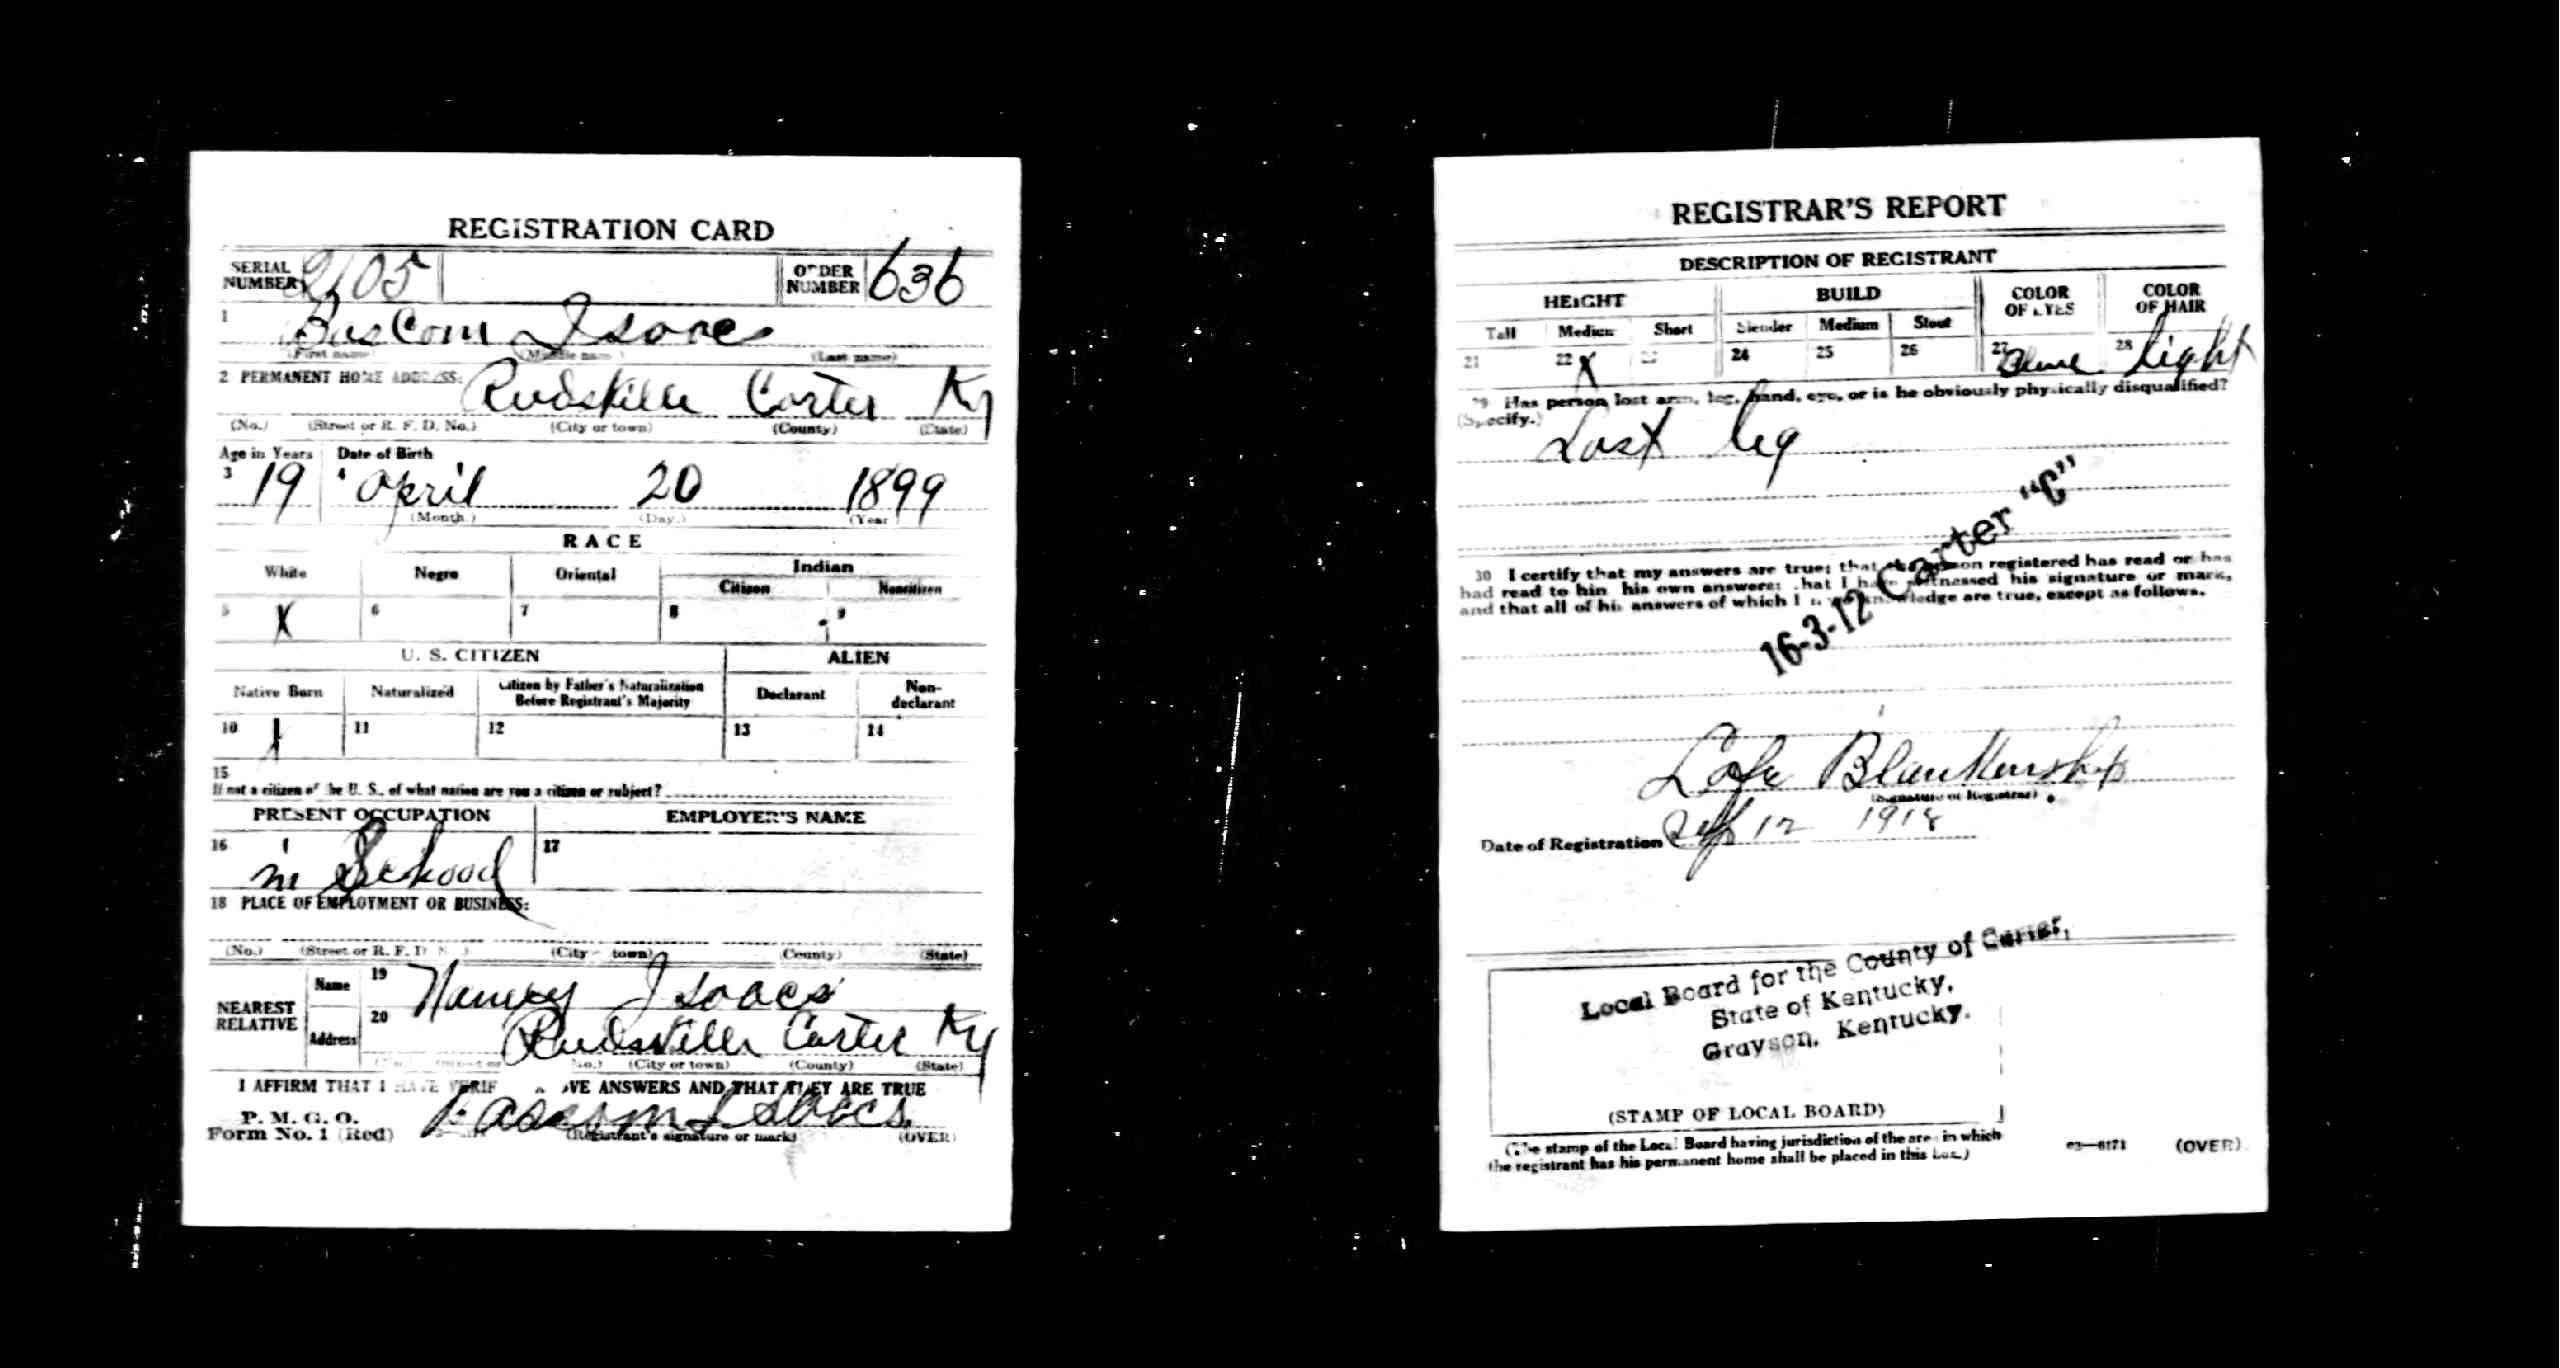 REGISTRATION CARD
SERIAL NUMBER 2105 ORDER NUMBER 636
1 Bascom Isaacs
(First name) (Middle name) (Last name)
2 PERMANENT HOME ADDRESS:
Carter Ky
(No.) (Street or R. F. D. No.) (City or town) (County) (State)
Age in Years Date of Birth
3 19 4 April 20 1899
(Month.) (Day.) (Year
RACE
White Negro Oriental Indian
Citizen Noncitizen
5 X 6 7 8 9
U. S. CITIZEN ALIEN
Native Born Naturalized Citizen by Father's Naturalization Before Registrant's Majority Declarant Non-declarant
10 X 11 12 13 14
15
If not a citizen of the U. S., of what nation are you a citizen or subject?
PRESENT OCCUPATION EMPLOYER'S NAME
16 in School 17
18 PLACE OF EMPLOYMENT OR BUSINESS:
(No.) (Street or R. F. D. No.) (City or town) (County) (State)
NEAREST RELATIVE Name 19 Nancy Isaacs
Address 20 Carter Ky
No.) (City or town) (County) (State)
I AFFIRM THAT I HAVE VERIF OVE ANSWERS AND THAT THEY ARE TRUE
P. M. G. O.
Form No. 1 (Red) Bascom Isaacs
(Registrant's signature or mark) (OVER)
REGISTRAR'S REPORT
DESCRIPTION OF REGISTRANT
HEIGHT BUILD COLOR OF EYES COLOR OF HAIR
Tall Medium Short Slender Medium Stout
21 22 X 23 24 25 26 27 Blue 28 light
29 Has person lost arm, leg, hand, eye, or is he obviously physically disqualified?
(Specify.) Lost leg
30 I certify that my answers are true; that the person registered has read or has
had read to him his own answers; that I have witnessed his signature or mark,
and that all of his answers of which I have knowledge are true, except as follows.
16-3-12 Carter "C"
Blankenship
(Signature of Registrar)
Date of Registration Sep 12 1918
Local Board for the County of Carter,
State of Kentucky,
Grayson, Kentucky.
(STAMP OF LOCAL BOARD)
(The stamp of the Local Board having jurisdiction of the area in which
the registrant has his permanent home shall be placed in this box.)
03—6171 (OVER)